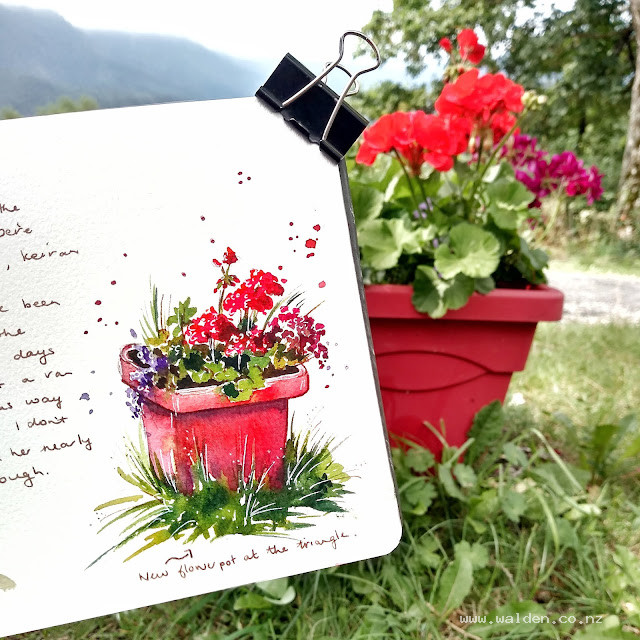 the
, keiran
e been
the
days
r a van
as way
I don't
t he nearly
ough.
New flower pot at the triangle.
www.walden.co.nz